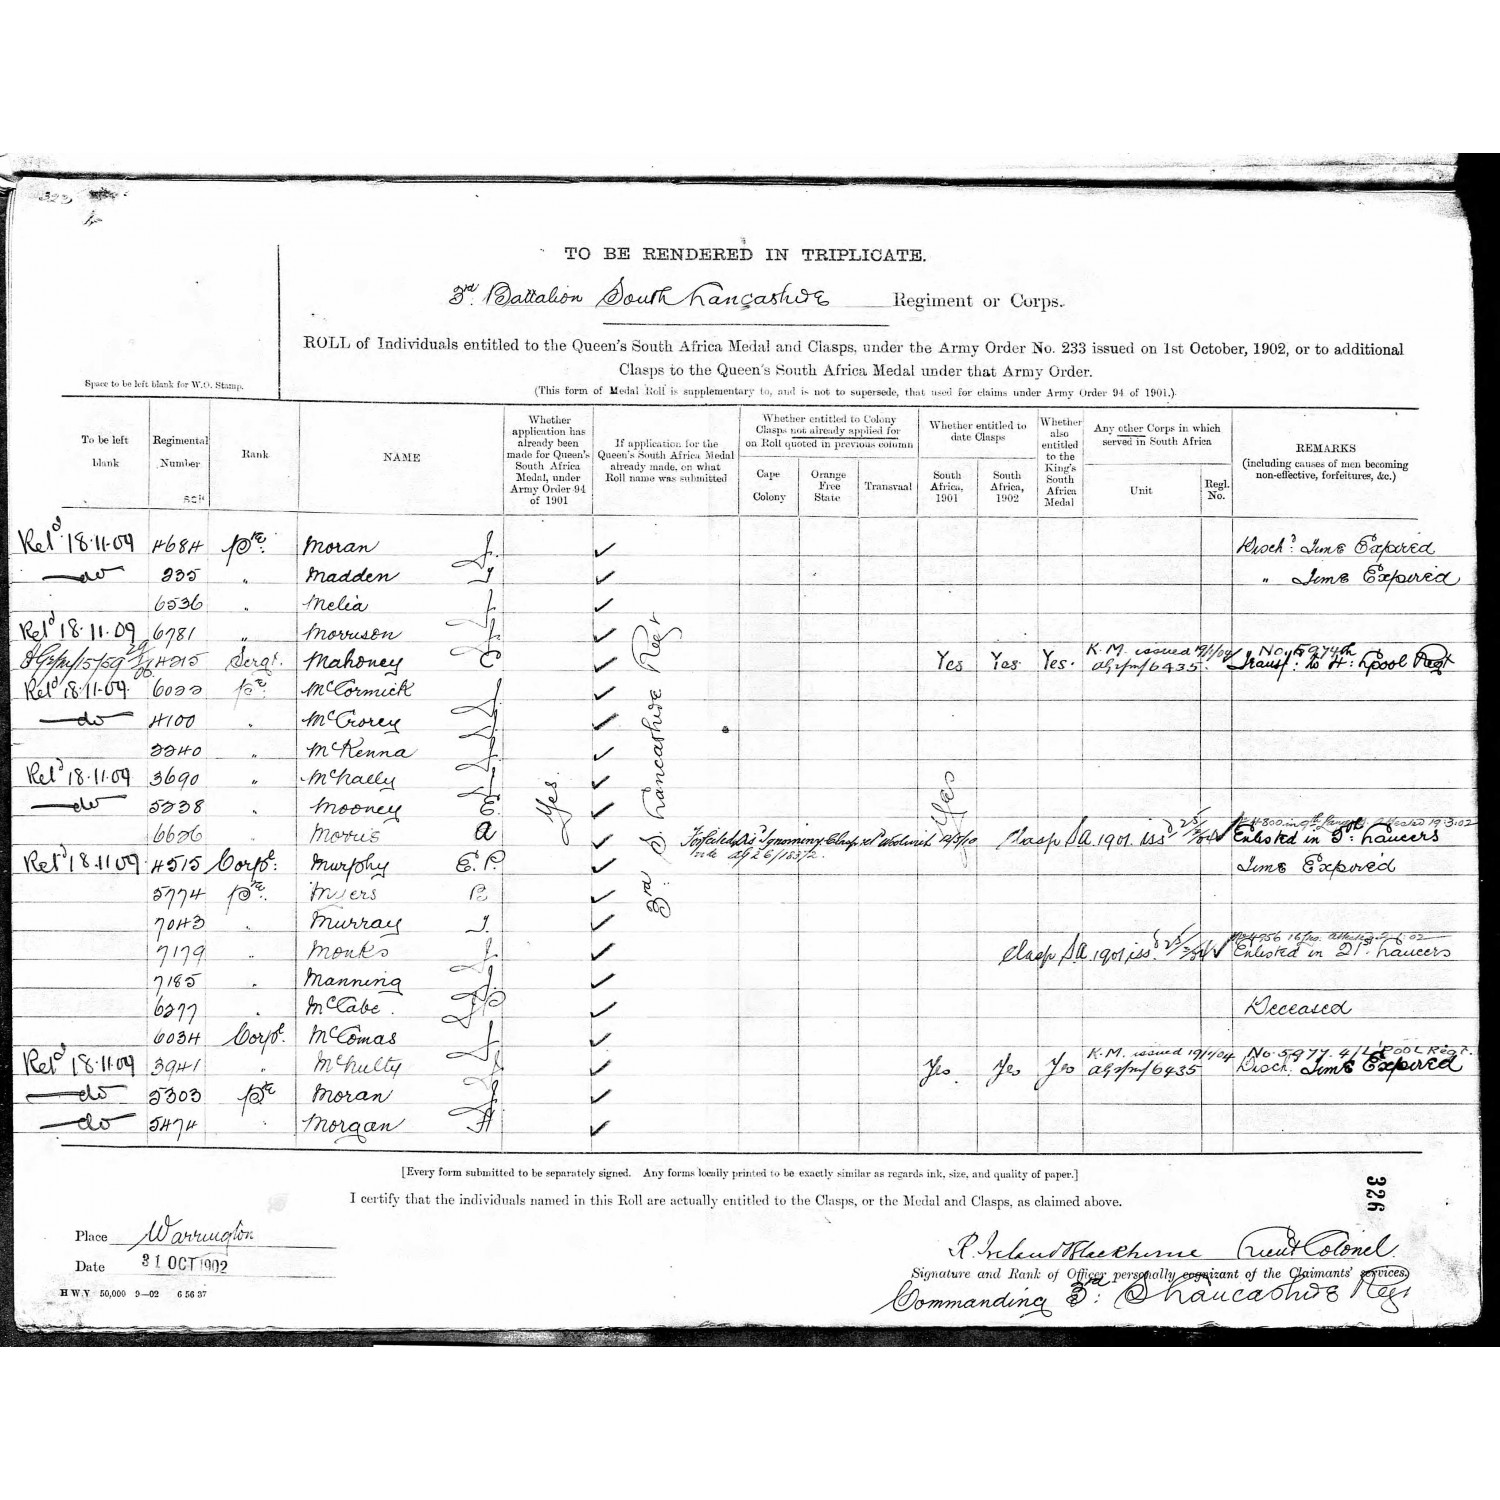 TO BE RENDERED IN TRIPLICATE.
3rd Battalion South Lancashire Regiment or Corps.
ROLL of Individuals entitled to the Queen's South Africa Medal and Clasps, under the Army Order No. 233 issued on 1st October, 1902, or to additional
Clasps to the Queen's South Africa Medal under that Army Order.
Space to be left blank for W.O. Stamp.
(This form of Medal Roll is supplementary to, and is not to supersede, that used for claims under Army Order 94 of 1901.)
To be left blank
Regimental Number
Rank
NAME
Whether application has already been made for Queen's South Africa Medal, under Army Order 94 of 1901
If application for the Queen's South Africa Medal already made, on what Roll name was submitted
Whether entitled to Colony Clasps not already applied for on Roll quoted in previous column
Cape Colony
Orange Free State
Transvaal
Whether entitled to date Clasps
South Africa, 1901
South Africa, 1902
Whether also entitled to the King's South Africa Medal
Any other Corps in which served in South Africa
Unit
Regl. No.
REMARKS
(including causes of men becoming non-effective, forfeitures, &c.)
Retd 18.11.09 4684 Pte. Moran J. ✓ Disch. Time Expired
do 235 " Madden T ✓ " Time Expired
6536 " Melia J ✓
Retd 18.11.09 6781 " Morrison J. ✓
4215 Sergt. Mahoney C ✓ Yes Yes Yes. K.M. issued 19/1/04 No. 5974 4th
6435 Transf. to 4: Lpool Regt
Retd 18.11.09 6022 Pte. McCormick J ✓
do 4100 " McCrorey J ✓
2240 " McKenna J ✓
Retd 18.11.09 3690 " McNally J ✓
do 5238 " Mooney E. ✓
6626 " Morris A ✓ Clasp S.A. 1901 issd Enlisted in 5th Lancers
Retd 18.11.09 4515 Corpl. Murphy E.P. ✓ Time Expired
5774 Pte. Myers B ✓
7043 " Murray J. ✓
7179 " Monks J. ✓ Clasp S.A. 1901 issd Enlisted in 21st Lancers
7185 " Manning J. ✓
6277 " McCabe. J P ✓ Deceased
6034 Corpl. McComas J ✓
Retd 18.11.09 3941 " McNulty J ✓ Yes. Yes Yes K.M. issued 19/1/04 No. 5977 4/L'POOL Regt.
6435 Disch. Time Expired
do 5303 Pte Moran J ✓
do 5474 " Morgan H ✓
Yes.
3rd S. Lancashire Regt
Yes
[Every form submitted to be separately signed. Any forms locally printed to be exactly similar as regards ink, size, and quality of paper.]
I certify that the individuals named in this Roll are actually entitled to the Clasps, or the Medal and Clasps, as claimed above.
326
Place Warrington
Date 31 OCT 1902
R. Ireland Blackburne Lieut Colonel.
Signature and Rank of Officer personally cognizant of the Claimants' services.
Commanding 3rd S Lancashire Regt
H W V 50,000 9—02 6 56 37